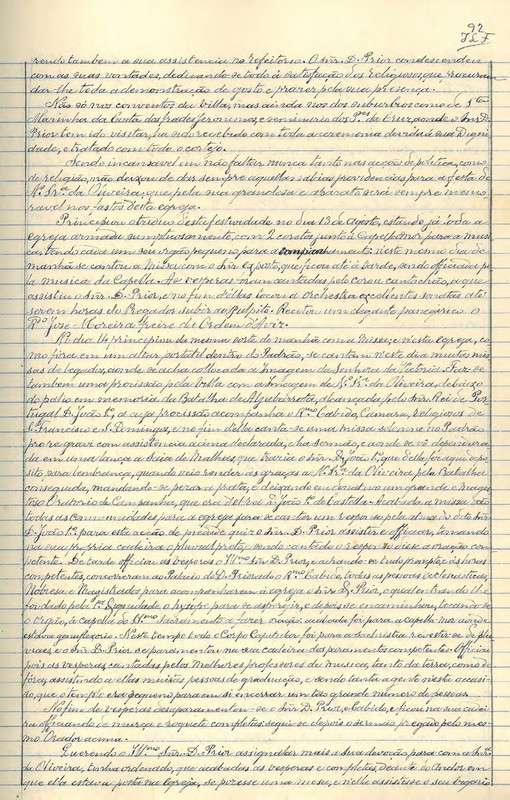 92
rendo tambem a sua assistencia no refeitorio. O Snr. D. Prior condescendeu
com as suas vontades, dedicando-se todo á satisfação dos religiosos, que procuraram
dar-lhe toda a demonstração de gosto e prazer, pela sua presença.
Não só nos conventos da Villa, mas ainda nos dos suburbios como de Sta.
Marinha da Costa dos frades Jeronimos e seminario dos Pes. da Cruz, aonde o Snr. D.
Prior tem ido visitar, ha sido recebido com toda a ceremonia devida á sua Digni
dade, e tratado com todo o cortejo.
Sendo incansavel em não faltar nunca tanto nas acções de politica, como
de religião, não deixou de dar sempre aquellas sabias providencias para a festa de
Na. Sra. da Oliveira, que pela sua grandosa e aparato será sempre memo
ravel nos fastos desta egreja.
Principiou o triduo desta festividade no dia 13 de Agosto, estando já toda a
egreja armada sumptuosamente, com 2 coretos junto á Capella Mor para a musi
ca, tendo cada um seu orgão pequeno para acompanhamento: neste mesmo dia de
manhã se cantou a Missa com o Snr. Exposto, que ficou até á tarde, sendo officiada pe
la musica da Capella. As vesperas foram cantadas pelo coro a cantochão, a que
assistiu o Snr. D. Prior, e no fim d'ellas tocou a orchestra excellentes sonatas até
serem horas do Pregador subir ao Pulpito. Recitou um elegante panegirico o
Rmo. José Moreira Freire da Ordem d'Aviz.
No dia 14 principiou da mesma sorte de manhã com a Missa, e nesta Egreja, co
mo fóra em um altar portatil dentro do Padrão, se cantam n'este dia muitas mis
sas de legados, aonde se acha collocada a Imagem da Senhora da Victoria. Faz-se
tambem uma procissão pela Villa com a Imagem de Na. Sra. da Oliveira, debaixo
do palio em memoria da Batalha de Aljubarrota, alcançada pelo Snr. Rei de Por
tugal D. João 1o., a cuja procissão acompanha o Rmo. Cabido, Camara, Religiosos de
S. Francisco e S. Domingos, e no fim della canta-se uma missa solemne no Padrão
pro re gravi com assistencia acima declarada, e ha sermão, e aonde se vê dependura
da em uma lança a Saia de Malhas, que trazia o Snr. D. João 1o., que d'ella fez aqui depo
sito para lembrança, quando veio render as graças a Na. Sra. da Oliveira pela Batalha
conseguida, mandando-se pezar a prata, e deixando um donativo um grande e mages
toso Oratorio de Campanha, que era d'elrei D. João 1o. de Castella. Acabada a missa vão
todas as Communidades para a egreja para se cantar um responso pela alma do dito Snr.
D. João 1o.: para esta acção de piedade quiz o Snr. D. Prior assistir e officiar, tomando
na sua propria cadeira o pluvial preto, sendo cantado o responso e disse a oração com
petente. De tarde officiou as vesperas o Illmo. Snr. D. Prior, e achando-se tudo prompto ás horas
competentes, concorreram ao Palacio do D. Priorado o Rmo. Cabido, todas as pessoas ecclesiasticas,
Nobreza e Magistrados para acompanharem á egreja o Snr. D. Prior, o qual chegando lhe
foi dado pela 1a. Dignidade o hyssope para se aspergir, e depois se encaminhou, tocando-se
o orgão, á capella do SSmo. Sacramento a fazer oração: acabada foi para a Capella Mor aonde
estava genuflexorio. Neste tempo todo o Corpo Capitular foi para a Sachristia revestir-se de plu
viaes e o Snr. D. Prior se paramentou na sua cadeira dos paramentos competentes. Officiou
pois as vesperas cantadas pelos melhores professores de musica, tanto da terra, como de
fóra, assistindo a ellas muitas pessoas de graduação, e sendo tanta a gente nesta occasi
ão, que o templo era pequeno para em si encerrar um tão grande numero de pessoas.
No fim de vesperas desaparamentou-se o Snr. D. Prior, e Cabido, e ficou na sua cadei
ra officiando de murça e roquete completas seguiu-se depois o sermão pregado pelo mes
mo Orador acima.
Querendo o Illmo. Snr. D. Prior assignallar mais a sua devoção para com a Snra.
da Oliveira, tinha ordenado, que acabadas as vesperas e completas, deante do Andor em
que ella estava posta na Egreja, se pozesse uma mesa, e n'elle assistisse o seu vigario